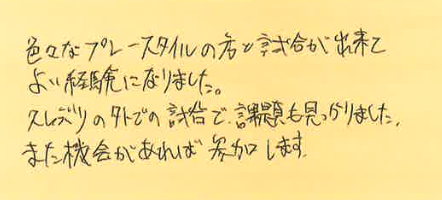 色々なプレースタイルの方と試合が出来て
よい経験になりました。
久しぶりの外での試合で、課題も見つかりました。
また機会があれば参加します。